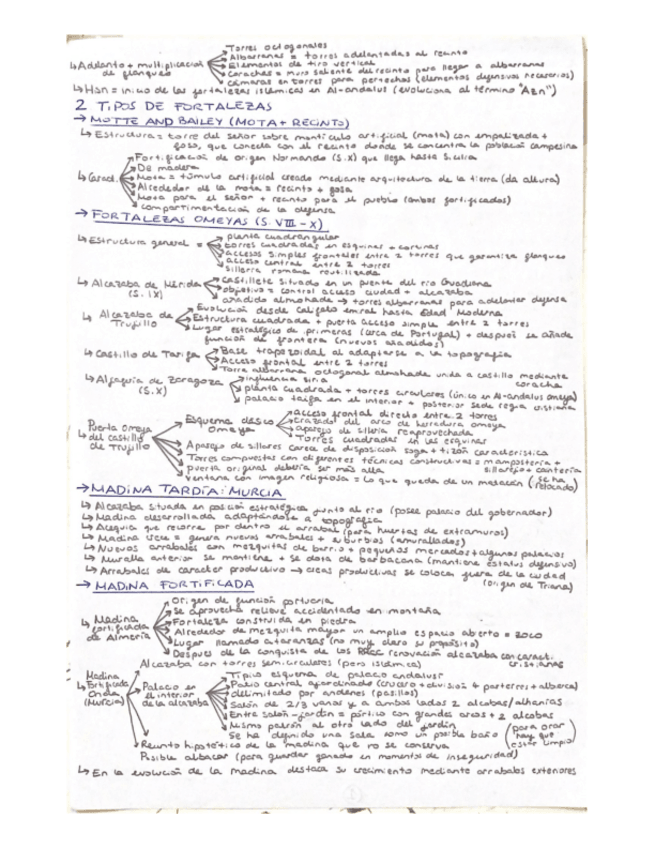 Torres octogonales
Albarranas = torres adelantadas al recinto
↳ Adelanto + multiplicación de flanqueo
Elementos de tiro vertical
Corachas = muro saliente del recinto para llegar a albarranas
cámaras en torres para pertechos (elementos defensivos necesarios)
↳ Hsn = inicio de las fortalezas islámicas en Al-andalus (evoluciona al término "Azn")
2 TIPOS DE FORTALEZAS
→ MOTTE AND BAILEY (MOTA + RECINTO)
↳ Estructura = torre del señor sobre montículo artificial (mota) con empalizada +
foso, que conecta con el recinto donde se concentra la población campesina
Fortificación de origen Normando (S.X) que llega hasta Sicilia
De madera
↳ Caract.
Mota = túmulo artificial creado mediante arquitectura de la tierra (da altura)
Alrededor de la mota = recinto + fosa
Mota para el señor + recinto para el pueblo (ambos fortificados)
compartimentación de la defensa
→ FORTALEZAS OMEYAS (S. VIII - X)
planta cuadrangular
↳ Estructura general =
torres cuadradas en esquinas + cortinas
accesos simples frontales entre 2 torres que garantiza flanqueo
acceso central entre 2 torres
sillería romana reutilizada
↳ Alcazaba de Mérida (S. IX)
castillete situado en un puente del río Guadiana
objetivo = control acceso ciudad + alcazaba
añadido almohade → torres albarranas para adelantar defensa
↳ Alcazaba de Trujillo
Evolución desde califato emiral hasta Edad Moderna
Estructura cuadrada + puerta acceso simple entre 2 torres
Lugar estratégico de primeras (cerca de Portugal) + después se añade
función de frontera (nuevos añadidos)
↳ Castillo de Tarifa
Base trapezoidal al adaptarse a la topografía
Acceso frontal entre 2 torres
Torre albarrana octogonal almohade unida a castillo mediante
coracha
↳ Aljafería de Zaragoza (S.X)
influencia siria
planta cuadrada + torres circulares (único en Al-andalus omeya)
palacio taifa en el interior + posterior sede regia cristiana
↳ Puerta Omeya del castillo de Trujillo
Esquema Omeya
acceso frontal directo entre 2 torres
del arco de herradura omeya
aparejo de sillería reaprovechada
Torres cuadradas en las esquinas
Aparejo de sillares carece de disposición soga + tizón característica
Torres compuestas con diferentes técnicas constructivas = mampostería +
sillarejo + cantería
puerta original debería ser más alta
ventana con imagen religiosa = lo que queda de un matacán (se ha retocado)
→ MADINA TARDÍA: MURCIA
↳ Alcazaba situada en posición estratégica junto al río (posee palacio del gobernador)
↳ Madina desarrollada adaptándose a topografía
↳ Acequia que recorre por dentro el arrabal (para huertas de extramuros)
↳ Madina crece = genera nuevos arrabales + suburbios (amurallados)
↳ Nuevos arrabales con mezquitas de barrio + pequeños mercados + algunos palacios
↳ Muralla anterior se mantiene + se dota de barbacana (mantiene estatus defensivo)
↳ Arrabales de carácter productivo → áreas productivas se coloca fuera de la ciudad
(origen de Triana)
→ MADINA FORTIFICADA
Origen de función portuaria
Se aprovecha relieve accidentado en montaña
↳ Madina fortificada de Almería
Fortaleza construida en piedra
Alrededor de mezquita mayor un amplio espacio abierto = zoco
Lugar llamado atarazanas (no muy claro su propósito)
Después de la conquista de los RRCC renovación alcazaba con caract.
cristianas
Alcazaba con torres semicirculares (pero islámica)
↳ Madina Fortificada Onda (Murcia)
Palacio en el interior de la alcazaba
Típico esquema de palacio andalusí
Patio central ajardinado (crucero + división 4 parterres + alberca)
delimitado por andenes (pasillos)
Salón de 2/3 vanos y a ambos lados 2 alcobas/alhanías
Entre salón - jardín = pórtico con grandes arcos + 2 alcobas
Mismo patrón al otro lado del jardín
Se ha definido una sala como un posible baño (para orar hay que estar limpio)
Recinto hipotético de la madina que no se conserva
Posible albacar (para guardar ganado en momentos de inseguridad)
↳ En la evolución de la madina destaca su crecimiento mediante arrabales exteriores